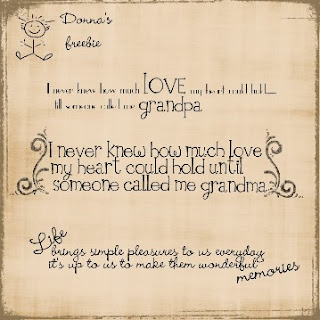 Donna's
freebie
I never knew how much LOVE my heart could hold...
till someone called me grandpa.
I never knew how much love
my heart could hold until
someone called me grandma.
Life
brings simple pleasures to us everyday
it's up to us to make them wonderful
memories